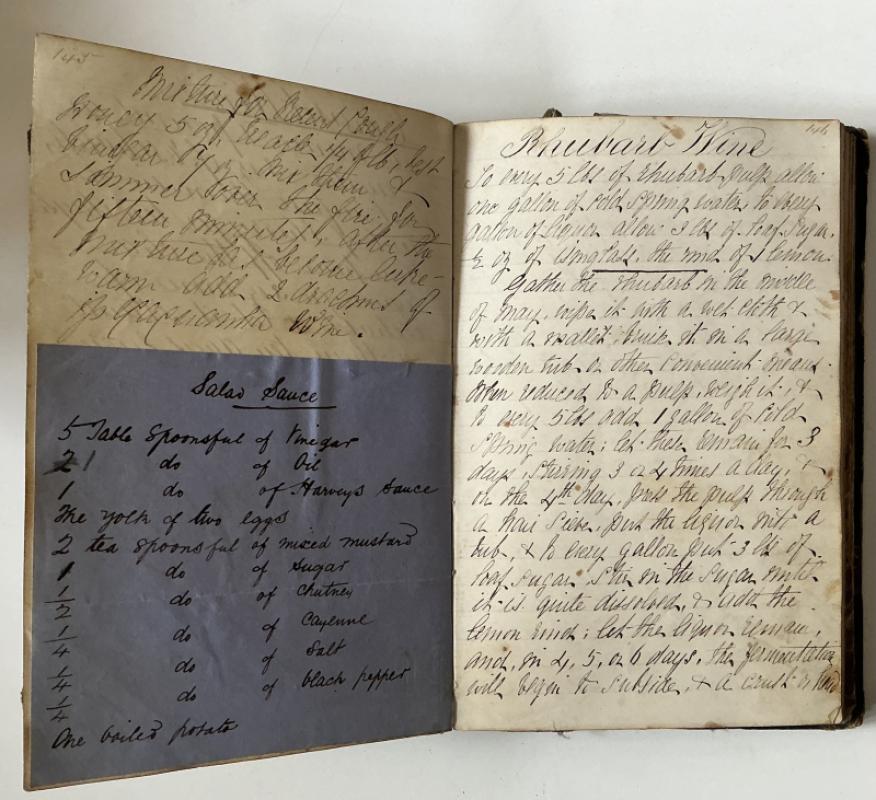 145
Mixture for Recent Cough
Honey 5 oz Treacle 1/4 of lb, best
Vinegar 5 oz. Mix them &
simmer over the fire for
fifteen minutes, after the
mixture has become luke-
warm add 2 drachms of
Ipecacuanha Wine.
Salad Sauce
5 Table Spoonsful of Vinegar
2 1 do of Oil
1 do of Harveys Sauce
The yolk of two eggs
2 tea spoonsful of mixed mustard
1 do of Sugar
1/2 do of Chutney
1/4 do of Cayenne
1/4 do of Salt
1/4 do of black pepper
One boiled potato
146
Rhubarb Wine
To every 5 lbs of rhubarb pulp allow
one gallon of cold spring water, to every
gallon of liquor allow 3 lbs of loaf sugar,
1/2 oz of isinglass, the rind of 1 lemon.
Gather the rhubarb in the middle
of may, wipe it with a wet cloth &
with a mallet bruise it in a large
wooden tub or other convenient means.
When reduced to a pulp, weigh it, &
to every 5 lbs add 1 gallon of cold
spring water; let these remain for 3
days, stirring 3 or 4 times a day, &
on the 4th day, press the pulp through
a hair sieve, put the liquor into a
tub, & to every gallon put 3 lbs of
loaf sugar. Stir in the sugar until
it is quite dissolved, & add the
lemon rind; let the liquor remain,
and, in 4, 5, or 6 days, the fermentation
will begin to subside, & a crust or head